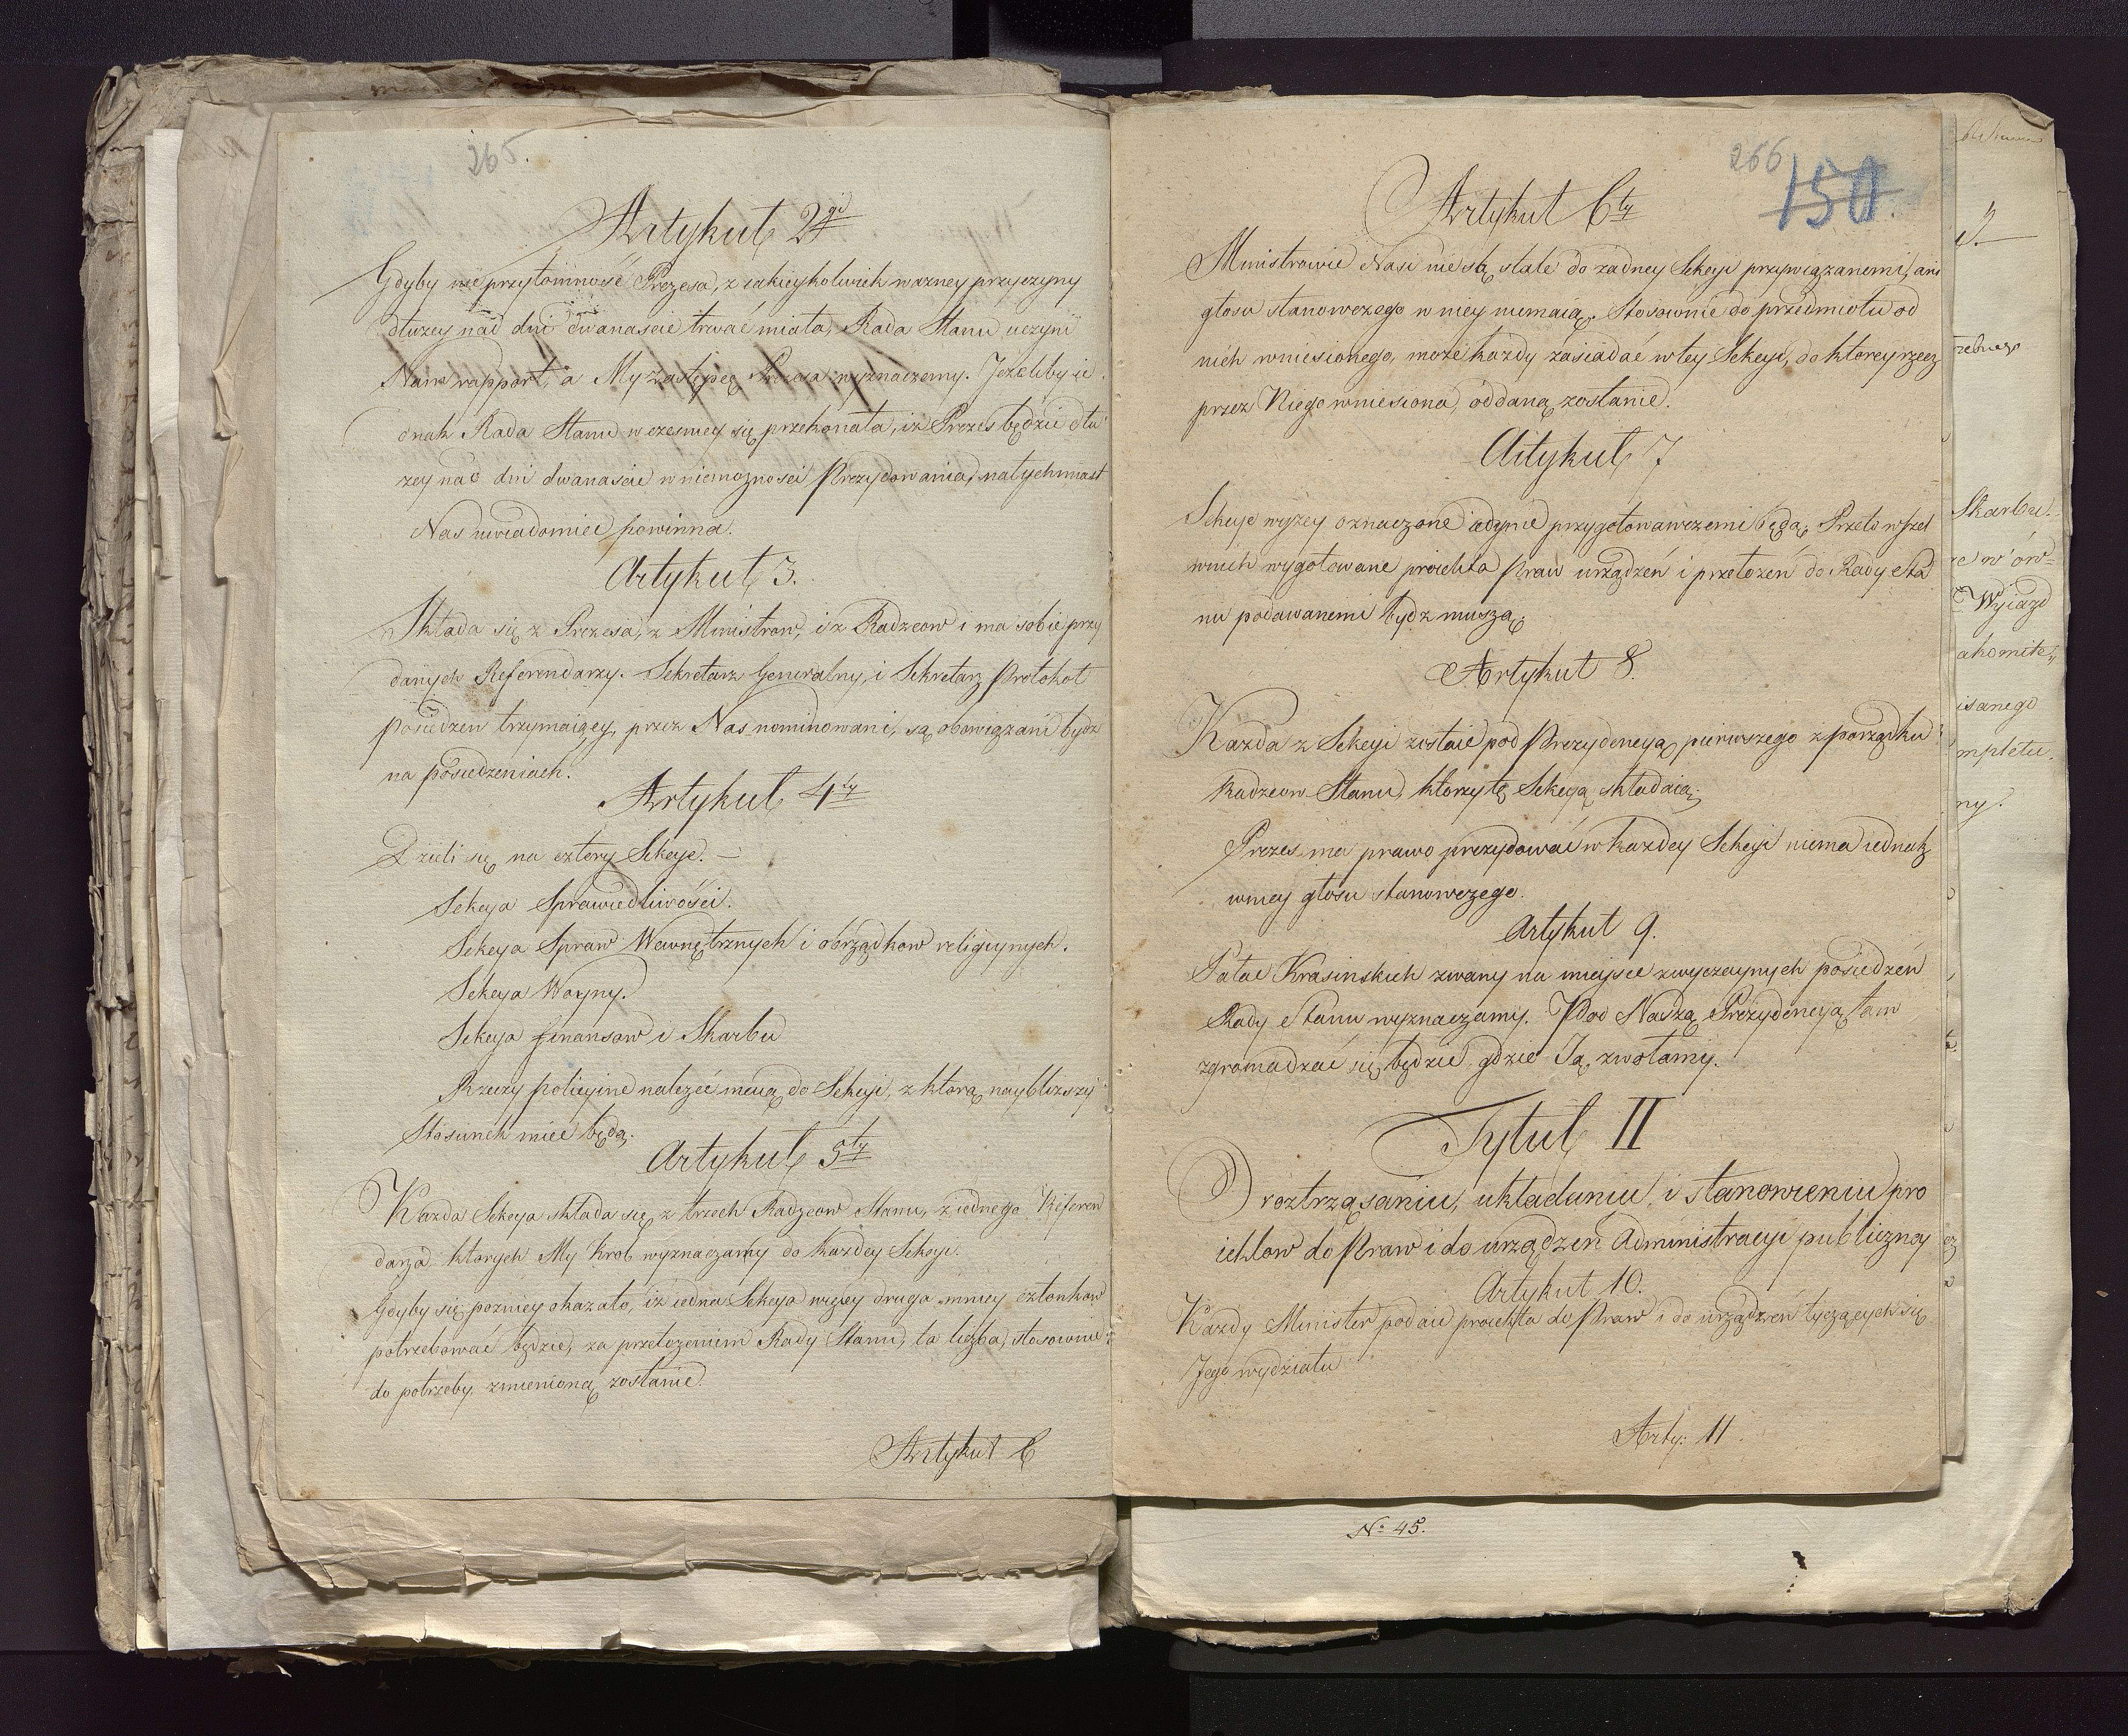 265.
Artykuł 2gi
Gdyby nieprzytomność Prezesa, z iakieykolwiek ważney przyczyny
dłużey nad dni dwanaście trwać miała, Rada Stanu uczyni
Nam rapport, a My Zastępcę Prezesa wyznaczemy. Jeżeliby ie
dnak Rada Stanu wczesniey się przekonała, iż Prezes będzie dłu
żey nad dni dwanaście w niemożności Prezydowania, natychmiast
Nas uwiadomić powinna.
Artykuł 3.
Składa się z Prezesa, z Ministrow, i z Radzcow i ma sobie przy
danych Referendarzy. Sekretarz Generalny, i Sekretarz Protokoł
posiedzen trzymaiący, przez Nas nominowani, są obowiązani bydz
na posiedzeniach.
Artykuł 4ty
Dzieli się na cztery Sekcye. —
Sekcya Sprawiedliwości.
Sekcya Spraw Wewnętrznych i obrządkow religiynych.
Sekcya Woyny.
Sekcya finansow i Skarbu
Rzeczy policyine należeć maią do Sekcyi, z którą naybliższy
Stosunek mieć będą.
Artykuł 5ty
Kazda Sekcya składa się z trzech Radzcow Stanu, z iednego Referen
darza których My Krol wyznaczamy do każdey Sekcyi.
Gdyby się pozniey okazało, iz iedna Sekcya więcey druga mniey członkow
potrzebować będzie, za przełożeniem Rady Stanu, ta liczba, stosownie
do potrzeby zmienioną zostanie.
Artykuł 6
266
150.
Artykuł 6ty
Ministrowie Nasi nie są stale do żadney Sekcyi przywiązanemi, ani
głosu stanowczego w niey niemaią. Stosownie do przedmiotu od
nich wniesionego, może każdy zasiadać w tey Sekcyi, do ktorey rzecz
przez Niego wniesiona, oddaną zostanie.
Artykuł 7
Sekcye wyżey oznaczone iedynie przygotowawczemi będą, Przeto wszel
wnich wygotowane proiekta Praw urządzeń i przełożeń do Rady Sta
nu podawanemi bydz muszą
Artykuł 8.
Kazda z Sekcyi zostaie pod Prezydencyą pierwszego z porządku
Radzcow Stanu, ktorzy tę Sekcyą składaią;
Prezes ma prawo prezydować w każdey Sekcyi niema iednak
wniey głosu stanowczego.
Artykuł 9.
Pałac Krasinskich zwany na mieysce zwyczaynych posiedzeń
Rady Stanu wyznaczamy. Pod Naszą Prezydencyą tam
zgromadzać się będzie gdzie Ją zwołamy.
Tytuł II
O roztrząsaniu, układaniu, i stanowieniu pro
iektow do Praw i do urządzeń Administracyi publiczney
Artykuł 10.
Każdy Minister podaie proiekta do Praw i do urządzeń tyczących się
Jego wydziału
Arty: 11
No 45.
Skarbu.
Wyiazd
isanego
mpletu.
ny.